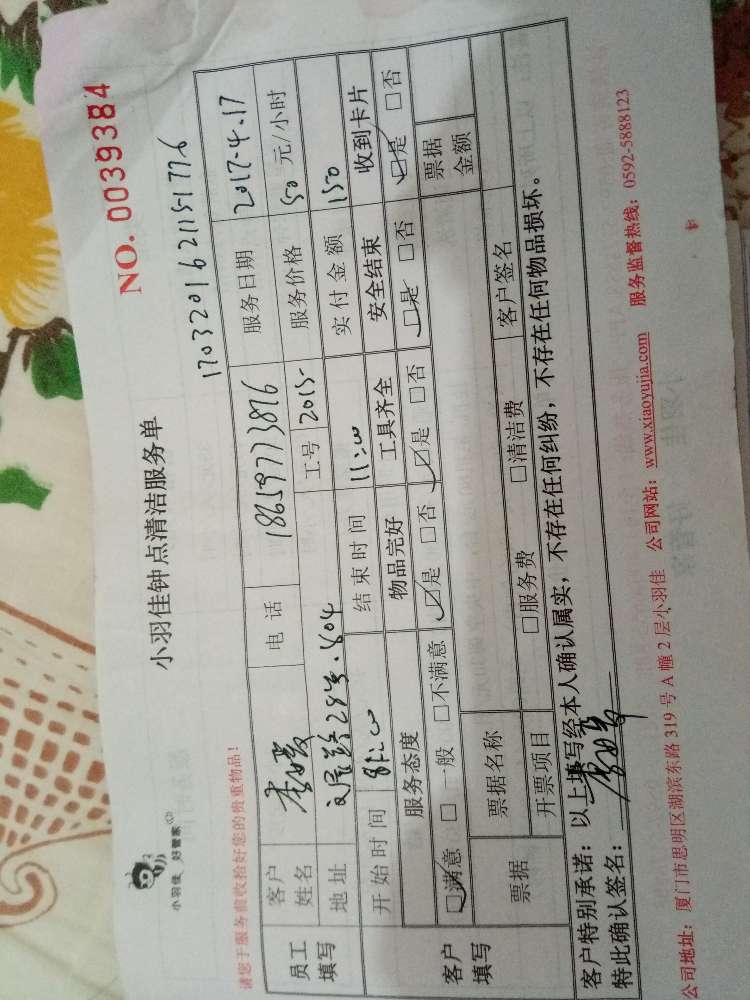 小羽佳 好管家
小羽佳钟点清洁服务单
NO. 0039384
请您于服务前收拾好您的贵重物品！
员工填写
客户姓名
电话 18659773876
服务日期 2017-4.17
地址
工号 2015-
服务价格 50 元/小时
开始时间
结束时间 11:00
实付金额 150
客户填写
服务态度 物品完好 工具齐全 安全结束 收到卡片
☑满意 □一般 □不满意 ☑是 □否 ☑是 □否 ☑是 □否 ☑是 □否
票据 票据名称 票据金额
开票项目 □服务费 □清洁费 客户签名
客户特别承诺：以上填写经本人确认属实，不存在任何纠纷，不存在任何物品损坏。
特此确认签名：
公司地址：厦门市思明区湖滨东路 319 号 A 幢 2 层小羽佳 公司网站：www.xiaoyujia.com 服务监督热线：0592-5888123